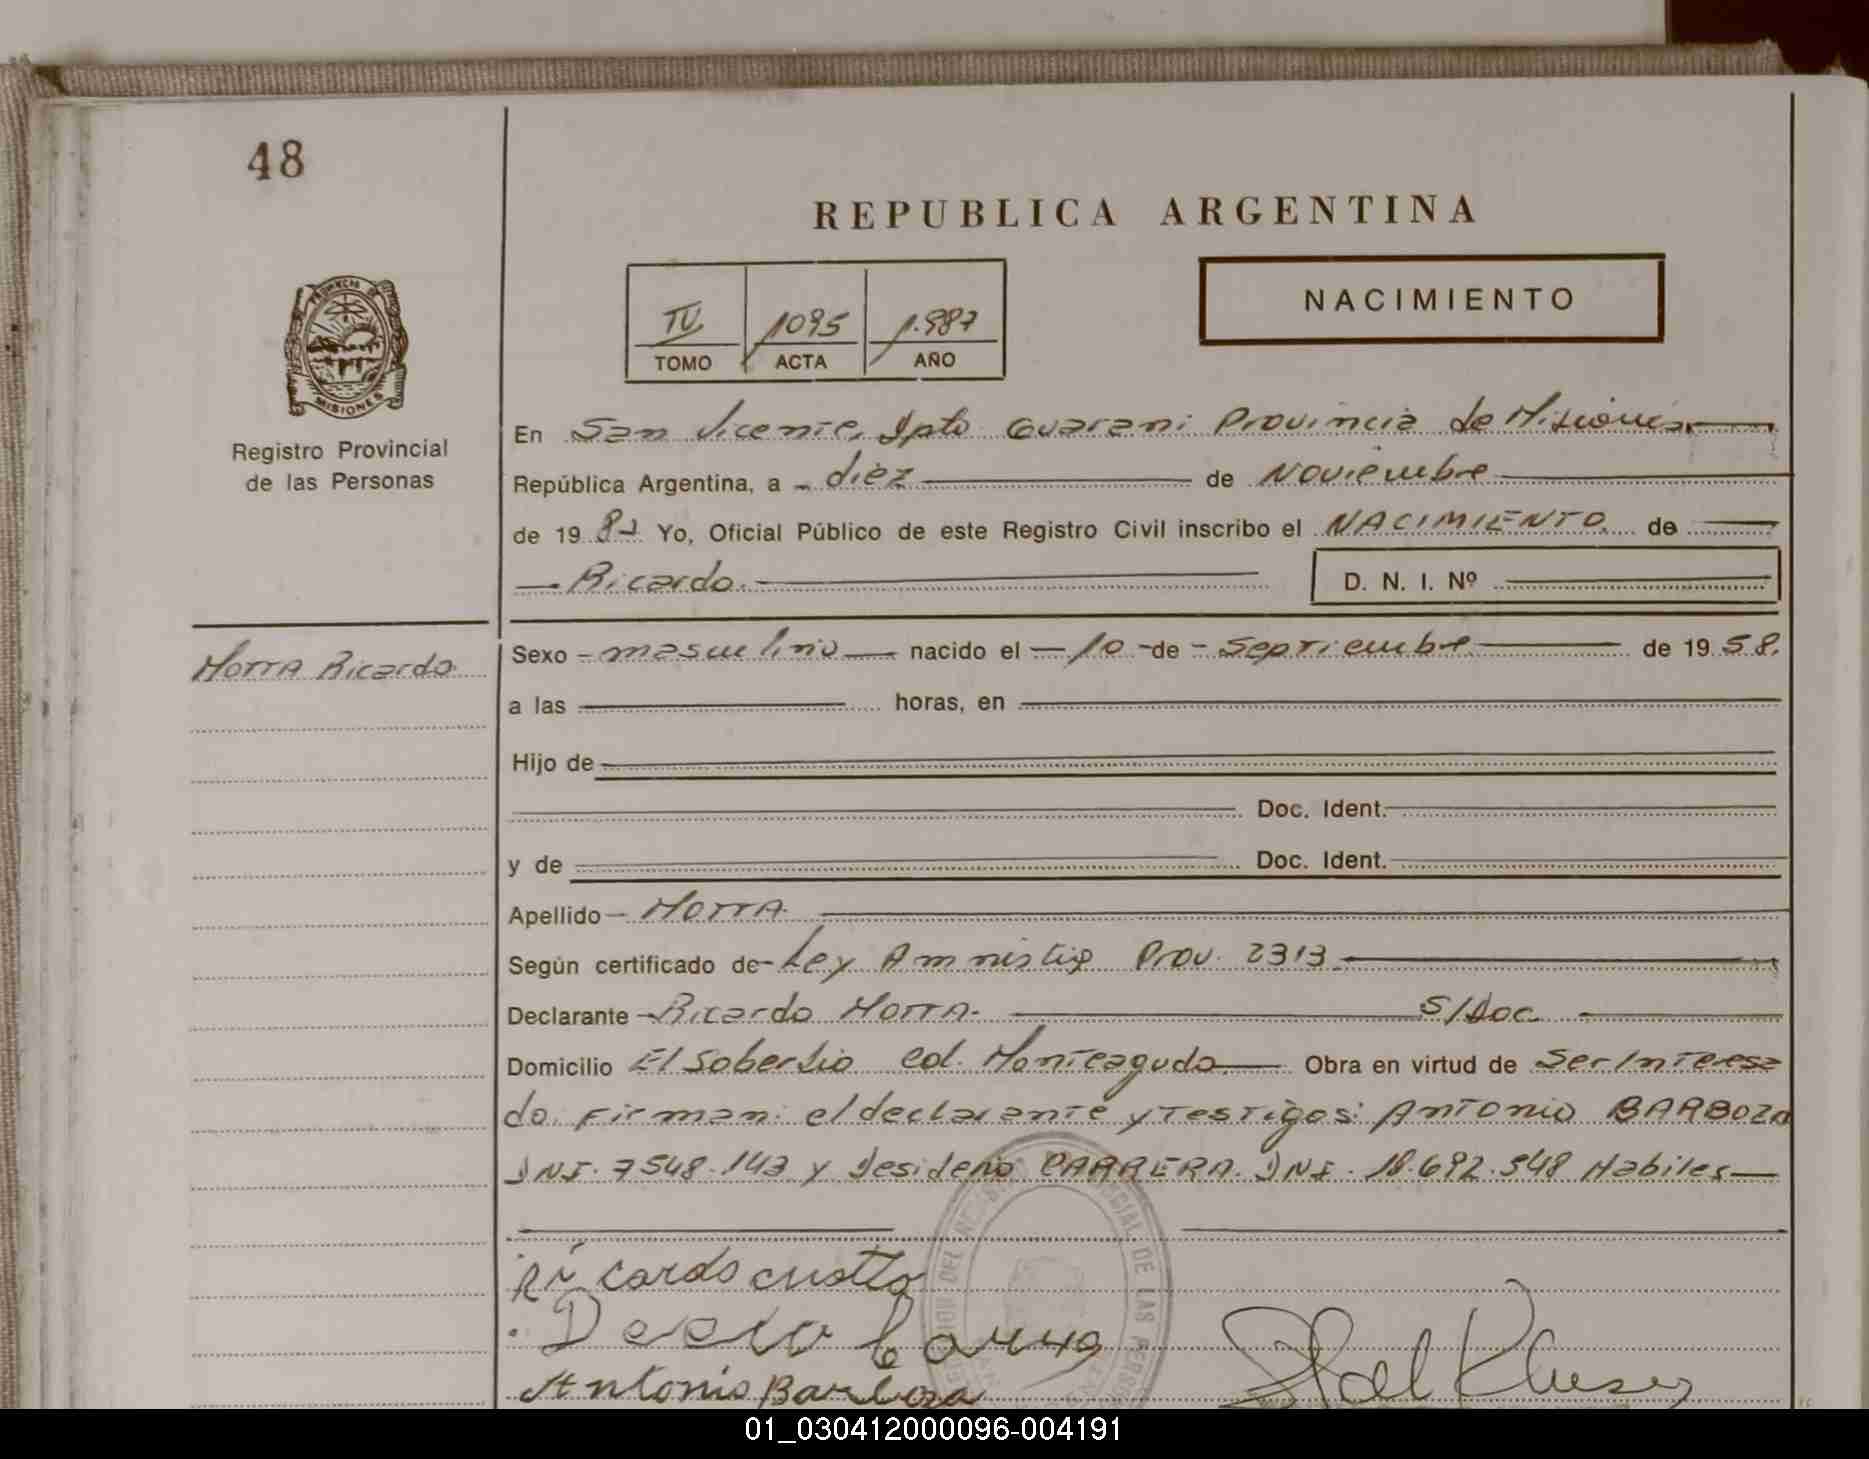 48
REPUBLICA ARGENTINA
IV 1095 1.987
TOMO ACTA AÑO
NACIMIENTO
PROVINCIA DE
MISIONES
Registro Provincial
de las Personas
En San Vicente, Dpto Guarani Provincia de Misiones
República Argentina, a diez de Noviembre
de 19 87 Yo, Oficial Público de este Registro Civil inscribo el NACIMIENTO de
Ricardo. D. N. I. Nº
MOTTA Ricardo
Sexo masculino nacido el 10 de Septiembre de 19 58.
a las horas, en
Hijo de
Doc. Ident.
y de Doc. Ident.
Apellido MOTTA
Según certificado de Ley Amnistia Prov. 2313
Declarante Ricardo MOTTA. S/Doc.
Domicilio El Soberbio Col. Monteagudo Obra en virtud de Ser Interesa
do. Firman: el declarante y Testigos: Antonio BARBOZA
DNI. 7548.143 y Desiderio CARRERA. DNI. 18.692.548 Habiles
Ricardo motta
Antonio Barboza
01_030412000096-004191